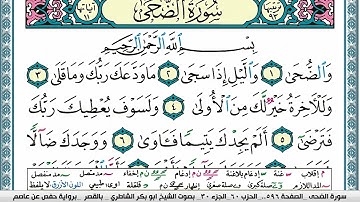 سُورَةُ الضُّحَىٰ
بِسْمِ اللَّهِ الرَّحْمَٰنِ الرَّحِيمِ
وَالضُّحَىٰ ١ وَاللَّيْلِ إِذَا سَجَىٰ ٢ مَا وَدَّعَكَ رَبُّكَ وَمَا قَلَىٰ ٣
وَلَلْآخِرَةُ خَيْرٌ لَّكَ مِنَ الْأُولَىٰ ٤ وَلَسَوْفَ يُعْطِيكَ رَبُّكَ
فَتَرْضَىٰ ٥ أَلَمْ يَجِدْكَ يَتِيمًا فَآوَىٰ ٦ وَوَجَدَكَ ضَالًّا
سورة الضحى - الصفحة ٥٩٦ - الحزب ٦٠ الجزء ٣٠ بصوت الشيخ أبو بكر الشاطري - بالقصر - برواية حفص عن عاصم